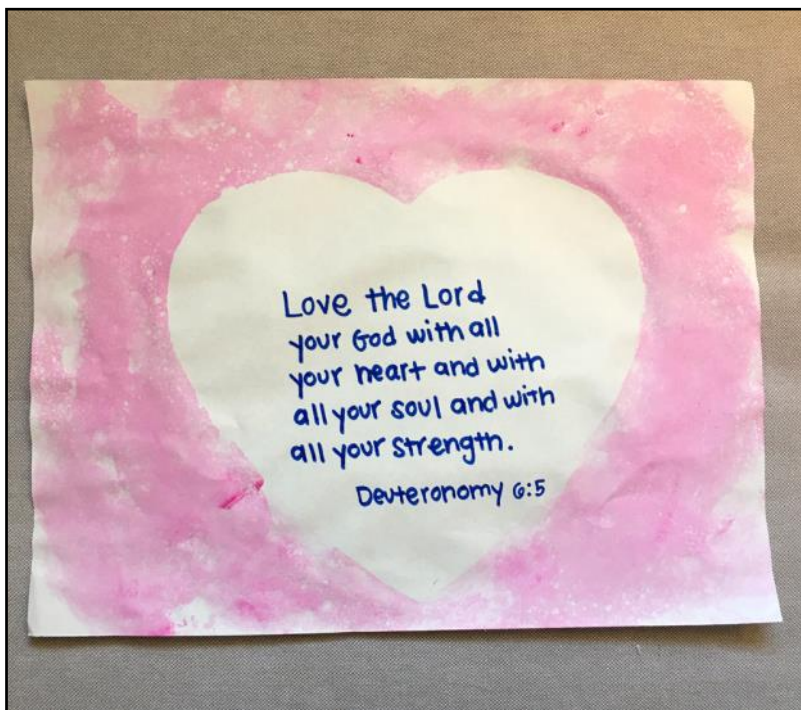 Love the Lord
your God with all
your heart and with
all your soul and with
all your strength.
Deuteronomy 6:5